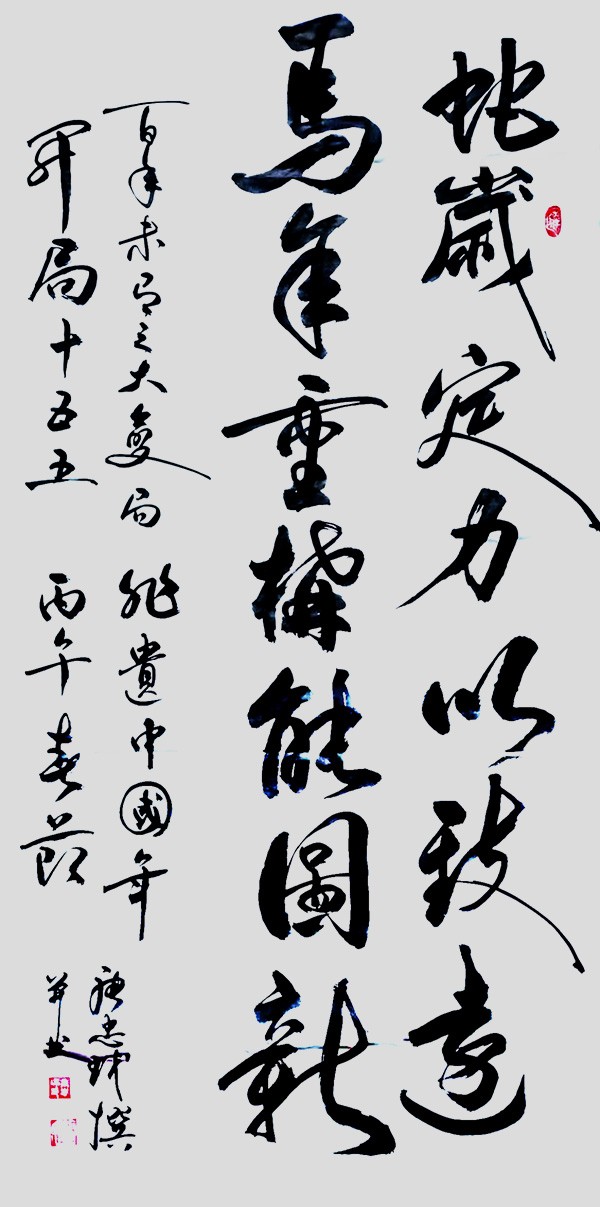 蛇歲定力以致遠
馬年重構能圖新
百年未有之大變局 非遺中國年
開局十五五 丙午春節
忠 撰
并书